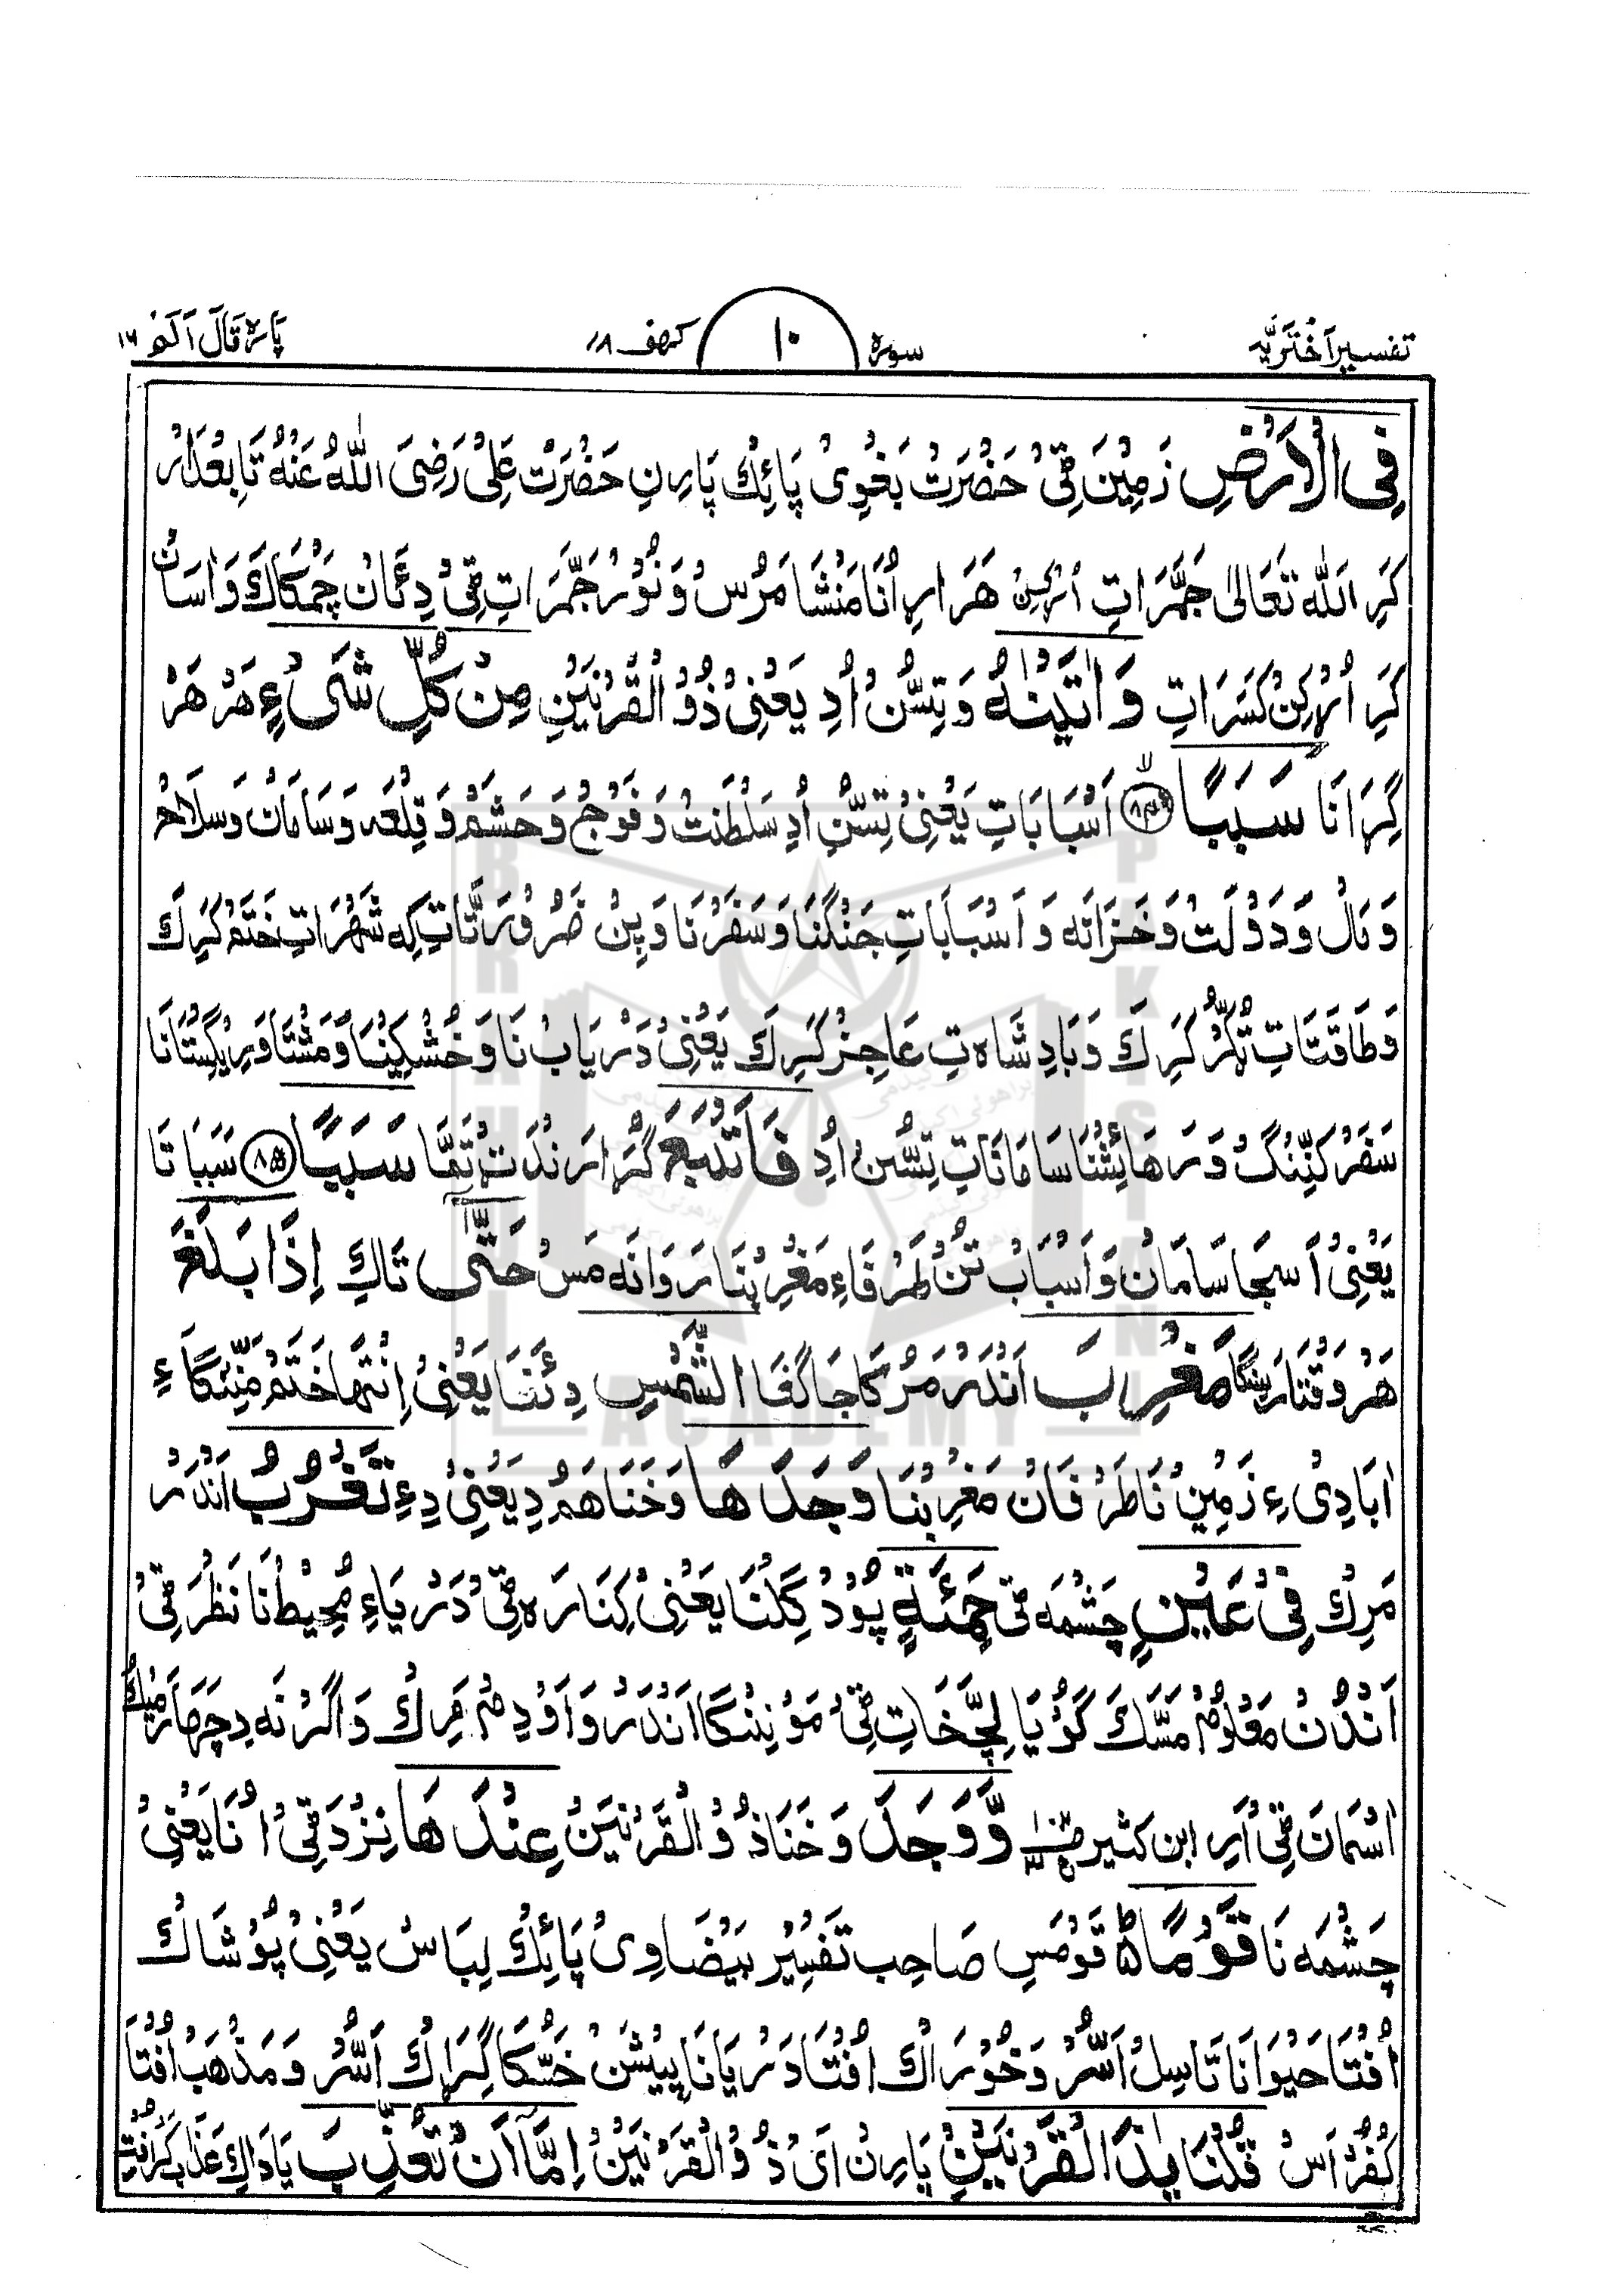 تفسیر اَختَرِیَّه سوره ۱۰ کهف ۱۸ پاره قَالَ اَلَم ۱۶
فِی الْاَرْضِ زَمِیْنَ قِیْ حَضْرَتْ بَغْوِیْ پَائِکْ پَارِنِ حَضْرَتْ عَلِیْ رَضِیَ اللّٰهُ عَنْهُ تَابِعْدَارْ
کَرِ اَللّٰه تَعَالیٰ جَمَّرَاتِ هَرَارِ اُنَا مَنْشَا مَرُسْ وَ نُوْرْ جَمَّرَاتِ قِیْ دِئَانْ چَمْکَاکَ وَ اٰسَانْ
کَرِ اُرْکِنْ کَسَرَاتِ وَاٰتَیْنٰهُ وَ تِسُّنْ اُدِ یَعْنِیْ ذُوْ الْقَرْنَیْنِ مِنْ کُلِّ شَیْءٍ هَرْ هَرْ
گِرَانَا سَبَبًا ۸۴ اَسْبَابَاتِ یَعْنِیْ تِسُّنِ اُدِ سَلْطَنَتْ وَ فَوْجْ وَ حَشَمْ وَ قِلْعَه وَ سَامَانْ وَ سِلَاحْ
وَ مَالْ وَ دَوْلَتْ وَ خَزَانَه وَ اَسْبَابَاتِ جَنْگنَا وَ سَفَرْنَا وَ پِنْ ضَرُوْرَتَّاتِ کِه شَهْرَاتِ خَتَمْ کَرِکَ
وَ طَاقَتَاتِ پُرْ کَرِکَ وَ بَادِشَاهتِ عَاجِزْ کَرِکَ یَعْنِیْ دَرْیَابْ نَا وَ خُشْکِیْنَا وَ مَشْتَا وَ رِیْگِسْتَانَا
سَفَرْ کَنِّنْگ وَ رَهَائِشْنَا سَامَانَاتِ تِسُّنْ اُدِ فَاَتْبَعَ گُرَا رَنْدَتْ تَمَّا سَبَبًا ۸۵ سَبَبَا تَا
یَعْنِیْ سَامَانْ وَ اَسْبَابْ تَنْ طَرْفَاءِ مَغْرِبْنَا رَوَانَه مَسْ حَتّٰی تَاکِ اِذَا بَلَغَ
هَرْوَقْتَا مَغْرِبَ اَنْدَرْ مَرْ کَا جَاگَغَا الشَّمْسِ دِئْنَا یَعْنِیْ اِنْتِهَا خَتَمْ مَنِّنْگاءِ
اٰبَادِیْ ءِ زَمِیْنْ نَا طَرْفَانْ مَغْرِبْنَا وَجَدَهَا وَ خَنَا هَمْ دِ یَعْنِیْ دِءِ تَغْرُبُ اَنْدَرْ
مَرِکْ فِیْ عَیْنٍ چَشْمَه قِیْ حَمِئَةٍ پُوْدْ گِلْنَا یَعْنِیْ کِنَارَه قِیْ دَرْیَاءِ مُحِیْطْ نَا نَظَرْ قِیْ
اَنْدُنْ مَعْلُوْمْ مَسَّکَ گُوْیَا لِجَّخَاتِ قِیْ مُوْنِنْگا اَنْدَرْ وَ اَوْدِمْ مَرِکْ وَ اَگَرْنَه دِ چَهَارَمِیْکْ
اٰسْمَانَ قِیْ اَرِ ابن کثیر وَّوَجَدَ وَ خَنَا ذُوْ الْقَرْنَیْنْ عِنْدَهَا نِزْدَ قِیْ اُنَا یَعْنِیْ
چَشْمَه نَا قَوْمًا قَوْمَسِ صَاحِبِ تَفْسِیْرِ بَیْضَاوِیْ پَائِکْ لِبَاسْ یَعْنِیْ پُوْشَاکْ
اُفْتَا حَیْوَانَاتَا سِلْ اَسُّرْ وَ خُوْرَاکْ اُفْتَا دَرْیَانَا پِیْشَنْ خَسُّکَا گِرَاکْ اَسُّرْ وَ مَذْهَبْ اُفْتَا
کُفْرْ اَسْ قُلْنَا یٰذَا الْقَرْنَیْنِ پَارِنْ اَیْ ذُوْ الْقَرْنَیْنْ اِمَّا اَنْ تُعَذِّبَ یَا دَاکِ عَذَابْ
BRAHUI ACADEMY PAKISTAN